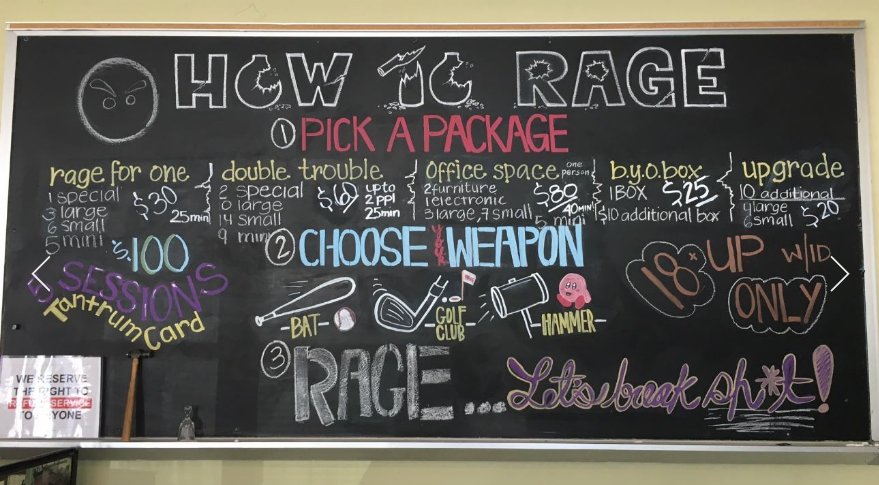 HOW TO RAGE
1 PICK A PACKAGE
rage for one
1 special
3 large
6 small
5 mini
$30
25min
double trouble
2 special
6 large
14 small
9 mini
$60
up to
2 ppl
25min
Office space
one
person
2 furniture
1 electronic
3 large, 7 small
5 mini
$80
40min
b.y.o.box
1 BOX
$25
$10 additional box
upgrade
10 additional
4 large
6 small
$20
$100
5 SESSIONS
Tantrum Card
2 CHOOSE your WEAPON
-BAT-
-GOLF
CLUB-
-HAMMER-
18+ UP W/ID
ONLY
3 RAGE... Let's break sh*t!
WE RESERVE
THE RIGHT TO
REFUSE SERVICE
TO ANYONE